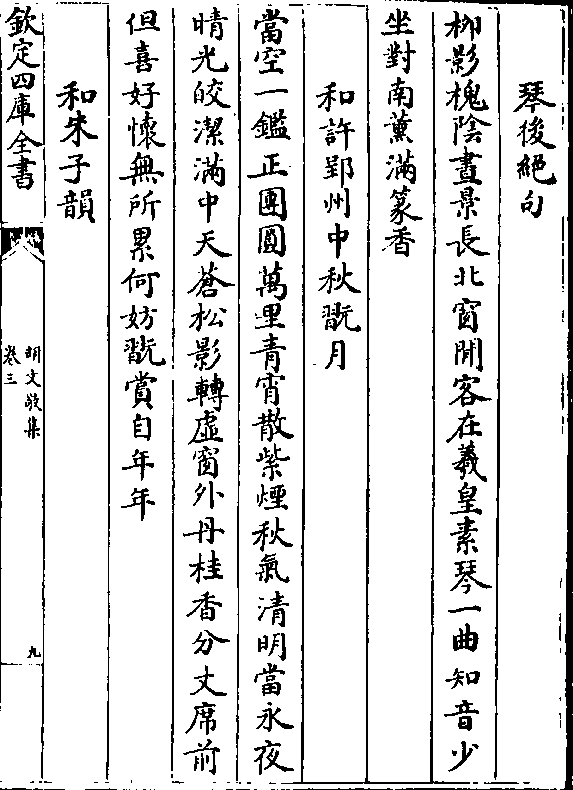 琴後絕句
柳影槐陰晝景長北窗閒客在羲皇素琴一曲知音少
坐對南薰滿篆香
和許郢州中秋翫月
當空一鑑正團圓萬里青宵散紫煙秋氣清明當永夜
晴光皎潔滿中天蒼松影轉虛窗外丹桂香分丈席前
但喜好懷無所累何妨翫賞自年年
和朱子韻
欽定四庫全書
胡文敬集
卷三
九